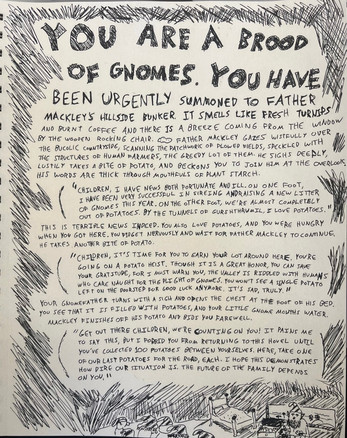 YOU ARE A BROOD
OF GNOMES. YOU HAVE
BEEN URGENTLY SUMMONED TO FATHER
MACKLEY'S HILLSIDE BUNKER. IT SMELLS LIKE FRESH TURNIPS
AND BURNT COFFEE AND THERE IS A BREEZE COMING FROM THE WINDOW
BY THE WOODEN ROCKING CHAIR. FATHER MACKLEY GAZES WISTFULLY OVER
THE BUCOLIC COUNTRYSIDE, SCANNING THE PATCHWORK OF PLOWED FIELDS, SPECKLED WITH
THE STRUCTURES OF HUMAN FARMERS, THE GREEDY LOT OF THEM. HE SIGHS DEEPLY,
LUSTILY TAKES A BITE OF POTATO, AND BECKONS YOU TO JOIN HIM AT THE OVERLOOK.
HIS WORDS ARE THICK THROUGH MOUTHFULS OF PLANT STARCH.
"CHILDREN, I HAVE NEWS BOTH FORTUNATE AND ILL. ON ONE FOOT,
I HAVE BEEN VERY SUCCESSFUL IN SIRING AND RAISING A NEW LITTER
OF GNOMES THIS YEAR. ON THE OTHER FOOT, WE'RE ALMOST COMPLETELY
OUT OF POTATOES. BY THE TUNNELS OF I LOVE POTATOES.
THIS IS TERRIBLE NEWS INDEED. YOU ALSO LOVE POTATOES, AND YOU WERE HUNGRY
WHEN YOU GOT HERE. YOU FIDGET NERVOUSLY AND WAIT FOR FATHER MACKLEY TO CONTINUE.
HE TAKES ANOTHER BITE OF POTATO.
"CHILDREN, IT'S TIME FOR YOU TO EARN YOUR LOT AROUND HERE. YOU'RE
GOING ON A POTATO HEIST. THOUGH IT IS A GREAT HONOR, YOU CAN SAVE
YOUR GRATITUDE, FOR I MUST WARN YOU, THE VALLEY IS RIDDLED WITH HUMANS
WHO CARE NAUGHT FOR THE PLIGHT OF GNOMES. YOU WON'T SEE A SINGLE POTATO
LEFT ON THE DOORSTEP FOR GOOD LUCK ANYMORE. IT'S SAD, TRULY."
YOUR GNOMEFATHER TURNS WITH A SIGH AND OPENS THE CHEST AT THE FOOT OF HIS BED.
YOU SEE THAT IT IS FILLED WITH POTATOES, AND YOUR LITTLE GNOME MOUTHS WATER.
MACKLEY FINISHES OFF HIS POTATO AND BIDS YOU FAREWELL.
"GET OUT THERE CHILDREN, WE'RE COUNTING ON YOU! IT PAINS ME
TO SAY THIS, BUT I FORBID YOU FROM RETURNING TO THIS HOVEL UNTIL
YOU'VE COLLECTED 100 POTATOES BETWEEN YOURSELVES. HERE, TAKE ONE
OF OUR LAST POTATOES FOR THE ROAD, EACH. I HOPE THIS DEMONSTRATES
HOW DIRE OUR SITUATION IS. THE FUTURE OF THE FAMILY DEPENDS
ON YOU."